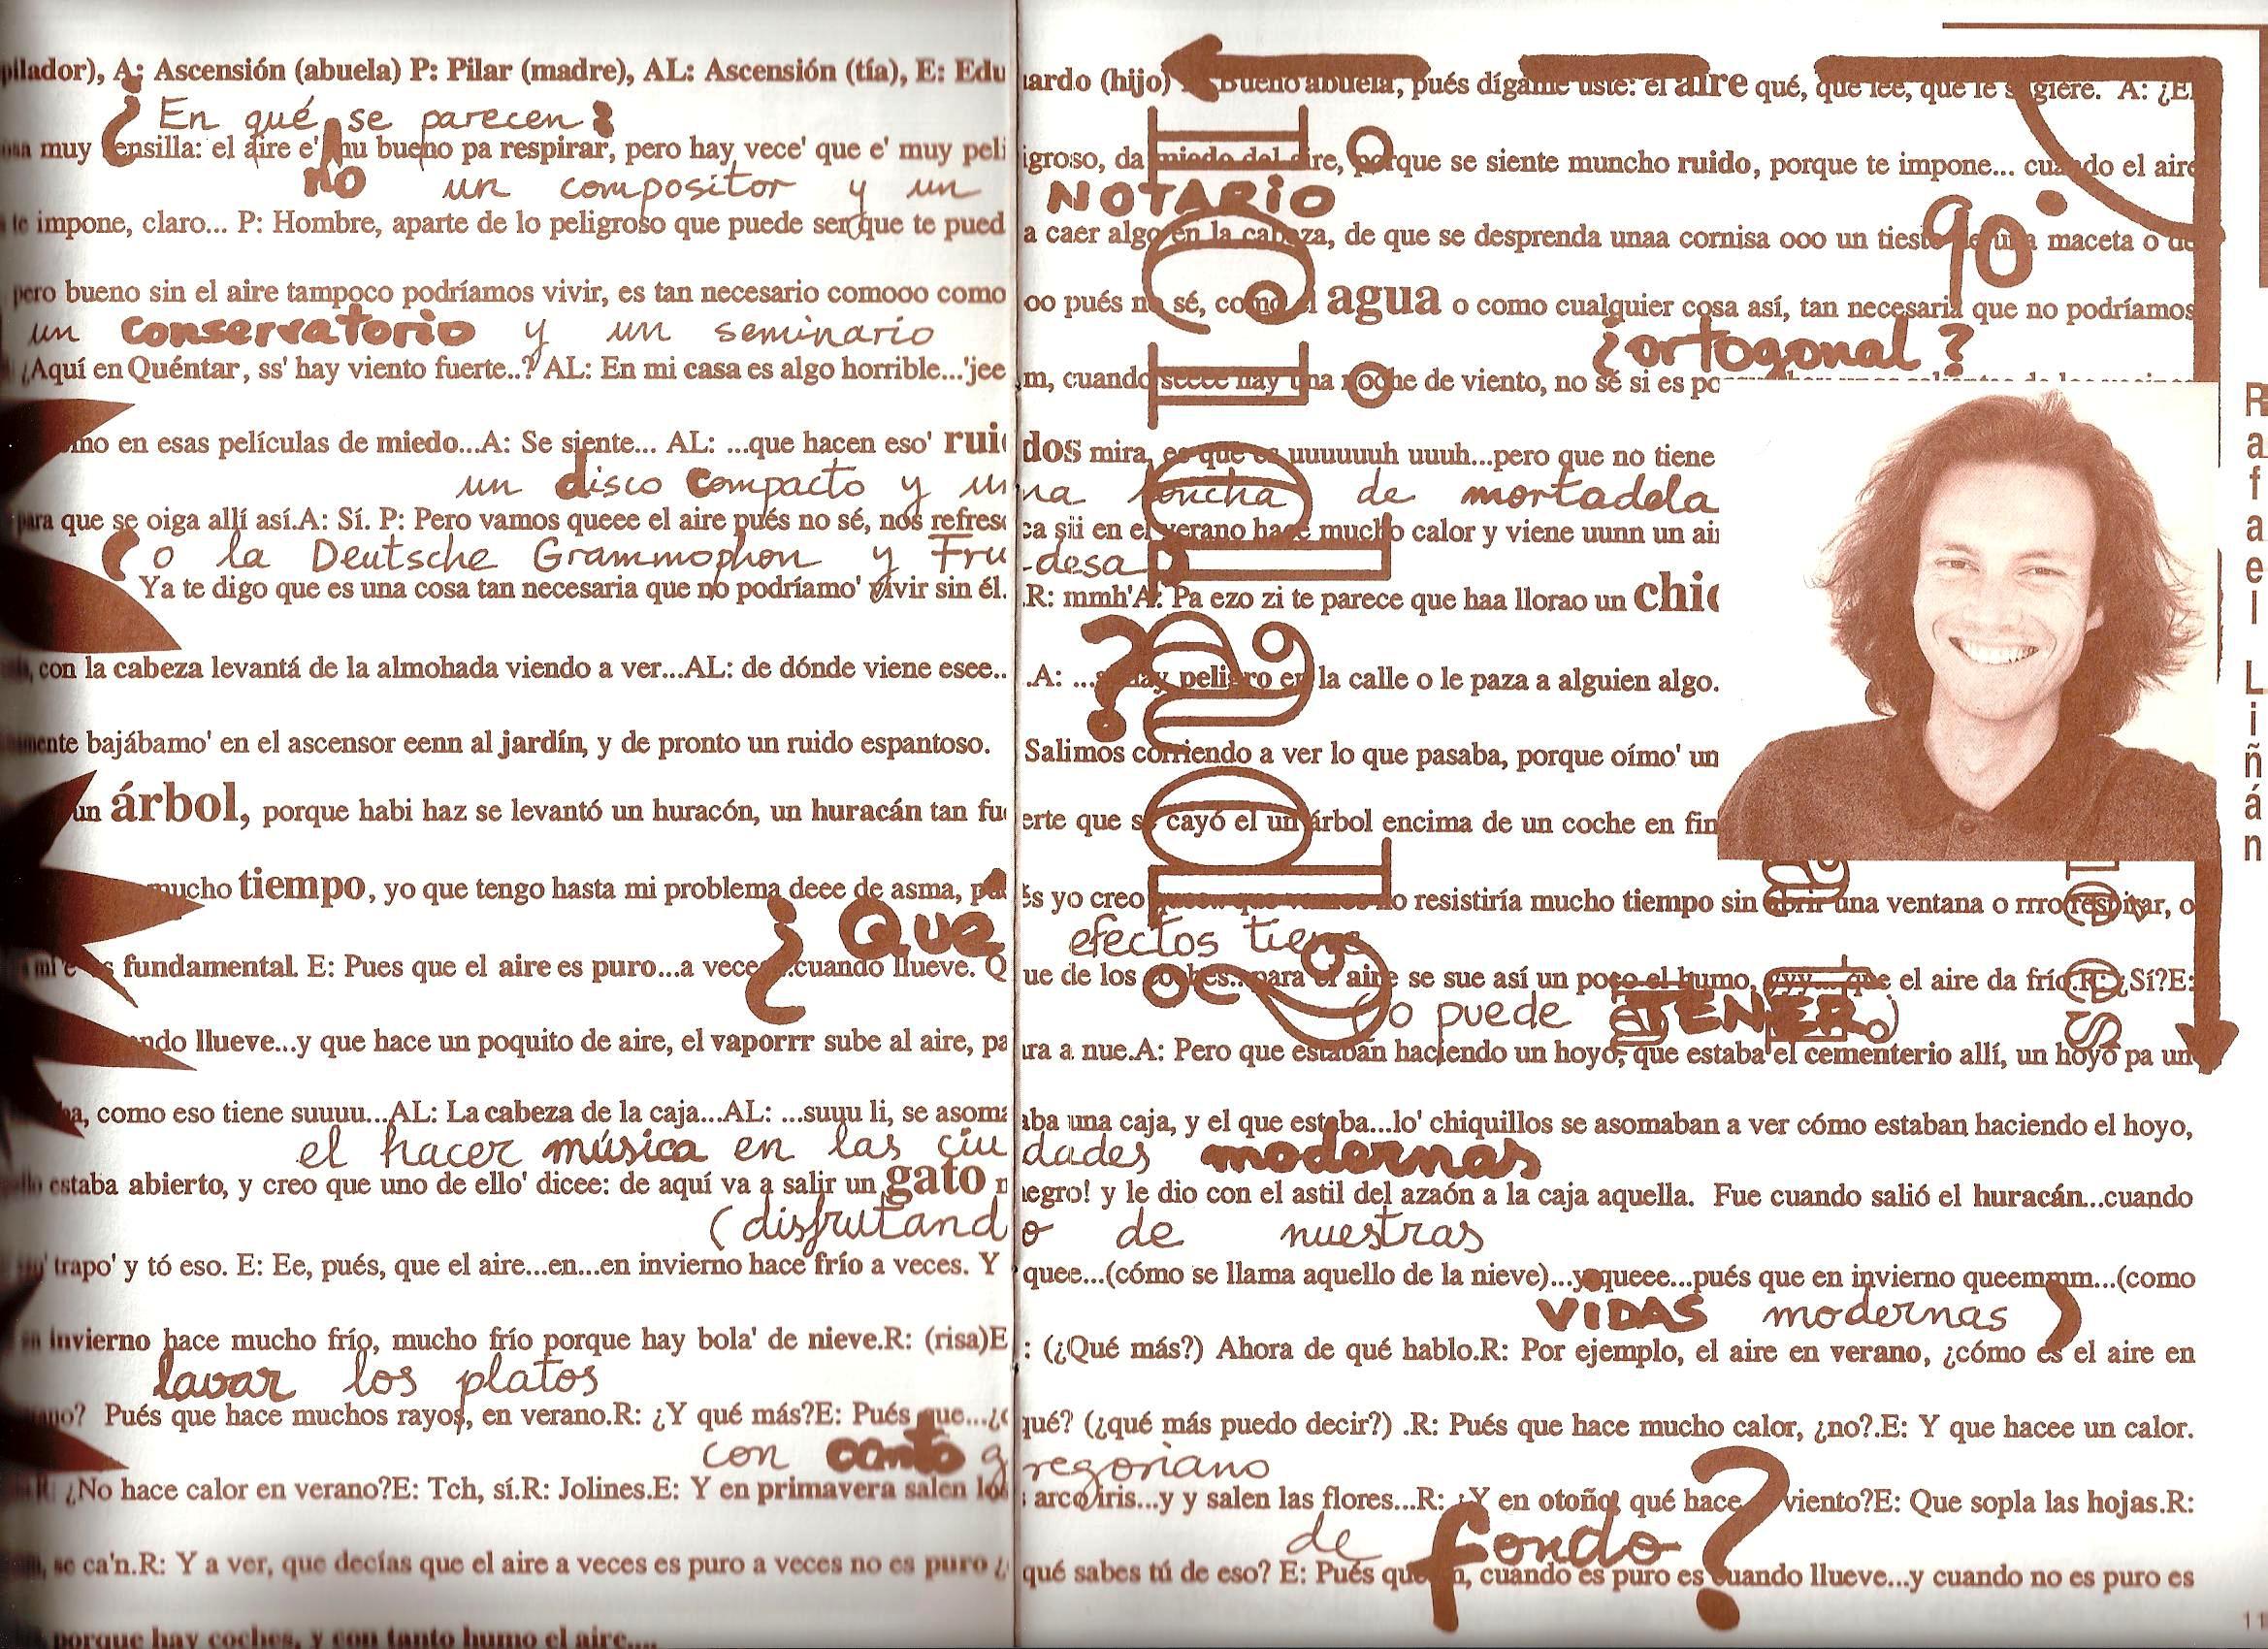 A: Ascensión (abuela) P: Pilar (madre), AL: Ascensión (tía), E: Eduardo (hijo) Bueno abuela, pués dígame usté: el aire qué, que lee, que le sugiere. A: ¿E
¿En qué se parecen
muy sensilla: el aire e' mu bueno pa respirar, pero hay vece' que e' muy peligroso, da miedo del aire, porque se siente muncho ruido, porque te impone... cuando el aire
no un compositor y un NOTARIO
te impone, claro... P: Hombre, aparte de lo peligroso que puede ser que te pueda caer algo en la cabeza, de que se desprenda unaa cornisa ooo un tiesto de una maceta o de
90º
pero bueno sin el aire tampoco podríamos vivir, es tan necesario comooo comooo pués no sé, como el agua o como cualquier cosa así, tan necesaria que no podríamos
un conservatorio y un seminario
¿ortogonal?
¿Aquí en Quéntar, ss' hay viento fuerte..? AL: En mi casa es algo horrible...'jeem, cuando seeee hay una noche de viento, no sé si es
en esas películas de miedo...A: Se siente... AL: ...que hacen eso' ruidos mira, es que es uuuuuuh uuuh...pero que no tiene
un disco compacto y una loncha de mortadela
para que se oiga allí así.A: Sí. P: Pero vamos queee el aire pués no sé, nos refresca sii en el verano hace mucho calor y viene uunn un
o la Deutsche Grammophon y Frudesa
?
Ya te digo que es una cosa tan necesaria que no podríamo' vivir sin él. R: mmh'A: Pa ezo zi te parece que haa llorao un
con la cabeza levantá de la almohada viendo a ver...AL: de dónde viene esee... A: ...si hay peligro en la calle o le paza a alguien algo.
bajábamo' en el ascensor eenn al jardín, y de pronto un ruido espantoso. Salimos corriendo a ver lo que pasaba, porque oímo' un
un árbol, porque habi haz se levantó un huracón, un huracán tan fuerte que se cayó el un árbol encima de un coche en
mucho tiempo, yo que tengo hasta mi problema deee de asma, pués yo creo resistiría mucho tiempo sin abrir una ventana o rrro respirar, o
¿Que efectos tiene
fundamental. E: Pues que el aire es puro...a veces...cuando llueve. Que de los coches...para el aire se sue así un poco el humo, yyy....que el aire da frío.R: ¿Sí?E:
(o puede TENER)
llueve...y que hace un poquito de aire, el vaporrr sube al aire, para a nue.A: Pero que estaban haciendo un hoyo, que estaba el cementerio allí, un hoyo pa un
como eso tiene suuuu...AL: La cabeza de la caja...AL: ...suuu li, se asomaba una caja, y el que estaba...lo' chiquillos se asomaban a ver cómo estaban haciendo el hoyo,
el hacer música en las ciudades modernas
estaba abierto, y creo que uno de ello' dicee: de aquí va a salir un gato negro! y le dio con el astil del azaón a la caja aquella. Fue cuando salió el huracán...cuando
(disfrutando de nuestras
trapo' y tó eso. E: Ee, pués, que el aire...en...en invierno hace frío a veces. Y quee...(cómo se llama aquello de la nieve)...y queee...pués que en invierno queemmm...(como
VIDAS modernas)
invierno hace mucho frío, mucho frío porque hay bola' de nieve.R: (risa)E: (¿Qué más?) Ahora de qué hablo.R: Por ejemplo, el aire en verano, ¿cómo es el aire en
lavar los platos
Pués que hace muchos rayos, en verano.R: ¿Y qué más?E: Pués que...¿qué? (¿qué más puedo decir?) .R: Pués que hace mucho calor, ¿no?.E: Y que hacee un calor.
con canto gregoriano
¿No hace calor en verano?E: Tch, sí.R: Jolines.E: Y en primavera salen los arco iris...y y salen las flores...R: ¿Y en otoño, qué hace viento?E: Que sopla las hojas.R:
de fondo?
se ca'n.R: Y a ver, que decías que el aire a veces es puro a veces no es puro ¿qué sabes tú de eso? E: Pués cuando es puro es cuando llueve...y cuando no es puro es
porque hay coches, y con tanto humo el aire....
Rafael Liñán
11